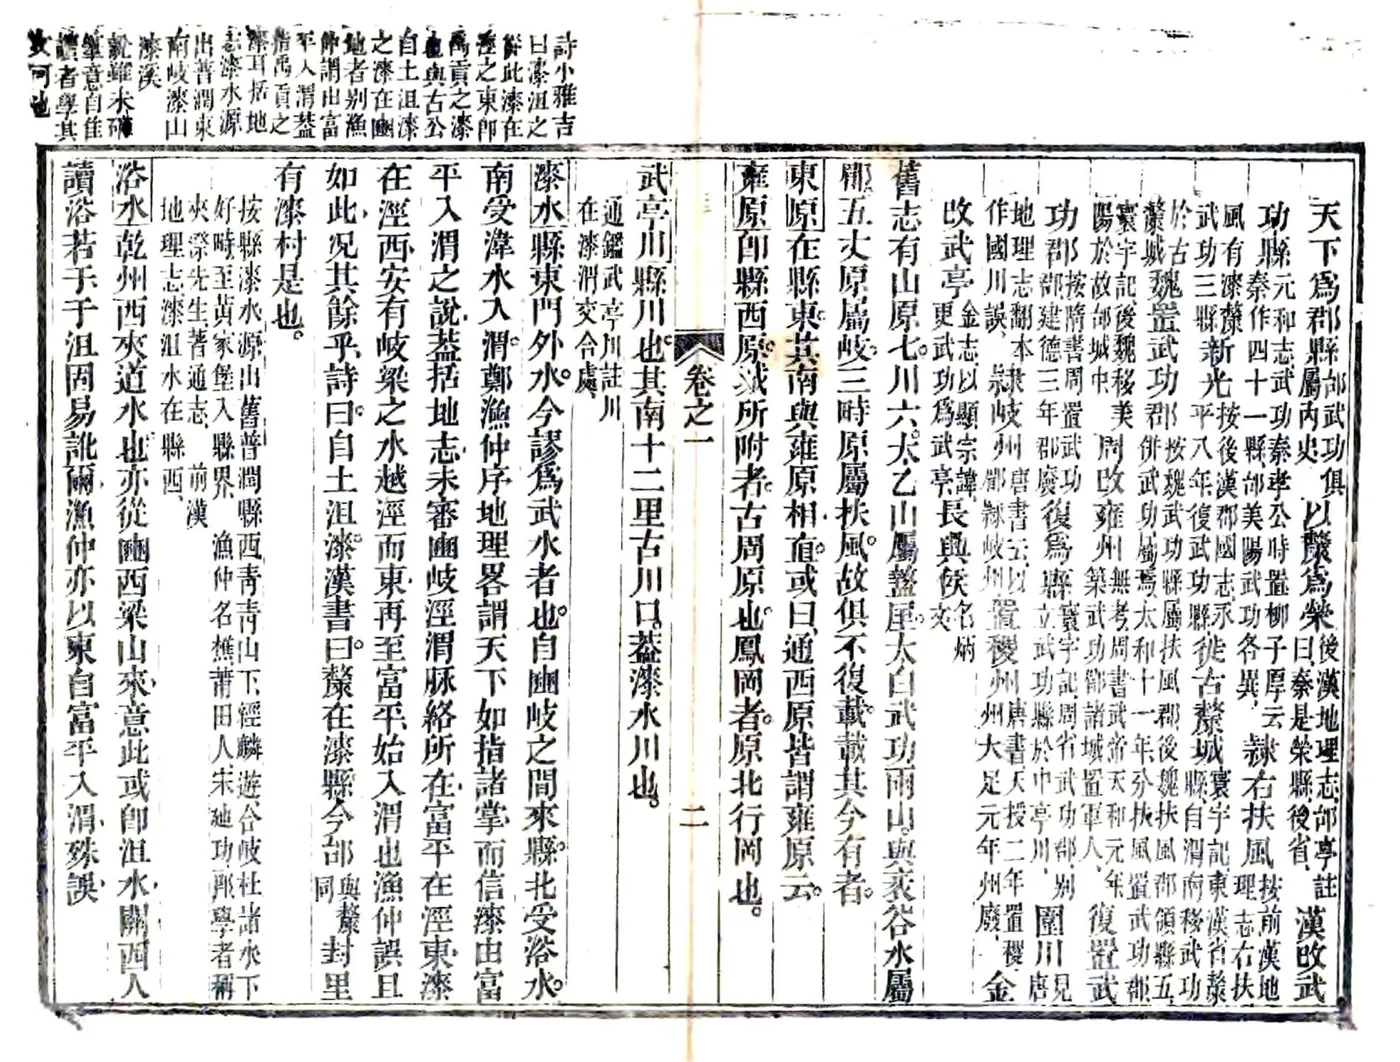 天下爲郡縣邰武功俱屬內史以斄爲榮後漢地理志邰亭註曰秦是榮縣後省漢改武
功縣元和志武功秦孝公時置柳子厚云秦作四十一縣邰美陽武功各異隷右扶風按前漢地理志右扶
風有漆斄武功三縣新光按後漢郡國志永平八年復武功縣徙古斄城寰宇記東漢省斄縣自渭南移武功
於古斄城魏置武功郡按魏武功縣屬扶風郡後魏扶風郡領縣五併武功屬焉太和十一年分扶風置武功郡
寰宇記後魏移美陽於故邰城中周改雍州無考周書武帝天和元年築武功郿諸城置軍人復置武
功郡按隋書周置武功郡建德三年郡廢復爲縣寰宇記周省武功郡別立武功縣於中亭川圍川見唐
地理志翻本作國川誤隷岐州唐書五以郿隸岐州置稷州唐書天授二年置稷州大足元年州廢金
改武亭金志以顯宗諱更武功爲武亭長興侯名炳文
舊志有山原七川六太乙山屬盩厔太白武功兩山與衺谷水屬
郿五丈原屬岐三時原屬扶風故俱不復載載其今有者
東原在縣東其南與雍原相直或曰通西原皆謂雍原云
雍原卽縣西原城所附者古周原也鳳岡者原北行岡也
卷之一
二
武亭川縣川也其南十二里古川口蓋漆水川也
通鑑武亭川註川在漆渭交合處
漆水縣東門外水今謬爲武水者也自豳岐之間來縣北受浴水
南受湋水入渭鄭漁仲序地理畧謂天下如指諸掌而信漆由富
平入渭之說蓋括地志未審豳岐涇渭脉絡所在富平在涇東漆
在涇西安有岐梁之水越涇而東再至富平始入渭也漁仲誤且
如此况其餘乎詩曰自土沮漆漢書曰斄在漆縣今邰與斄同封里
有漆村是也
按縣漆水源出舊普潤縣西青青山下徑麟遊合岐杜諸水下
好畤至黃家堡入縣界 漁仲名樵莆田人宋廸功郎學者稱
夾漈先生著通志 前漢
地理志漆沮水在縣西
浴水乾州西夾道水也亦從豳西梁山來意此或卽沮水關西人
讀浴若于于沮固易訛爾漁仲亦以東自富平入渭殊誤
詩小雅吉
曰漆沮之
從此漆在
涇之東卽
禹貢之漆
也與古公
自土沮漆
之漆在豳
地者別漁
仲謂出富
平入渭蓋
指禹貢之
漆耳括地
志漆水源
出普潤東
南岐漆山
漆溪
說雖未確
筆意自佳
讀者學其
文可也